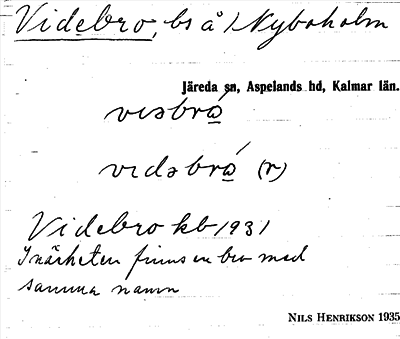 Videbro, bs å 1 Nyboholm
Järeda sn, Aspelands hd, Kalmar län.
visbrò̱
vidəbrò̱ (r)
Videbro kb 1931
I närheten finns en bro med
samma namn
NILS HENRIKSON 1935